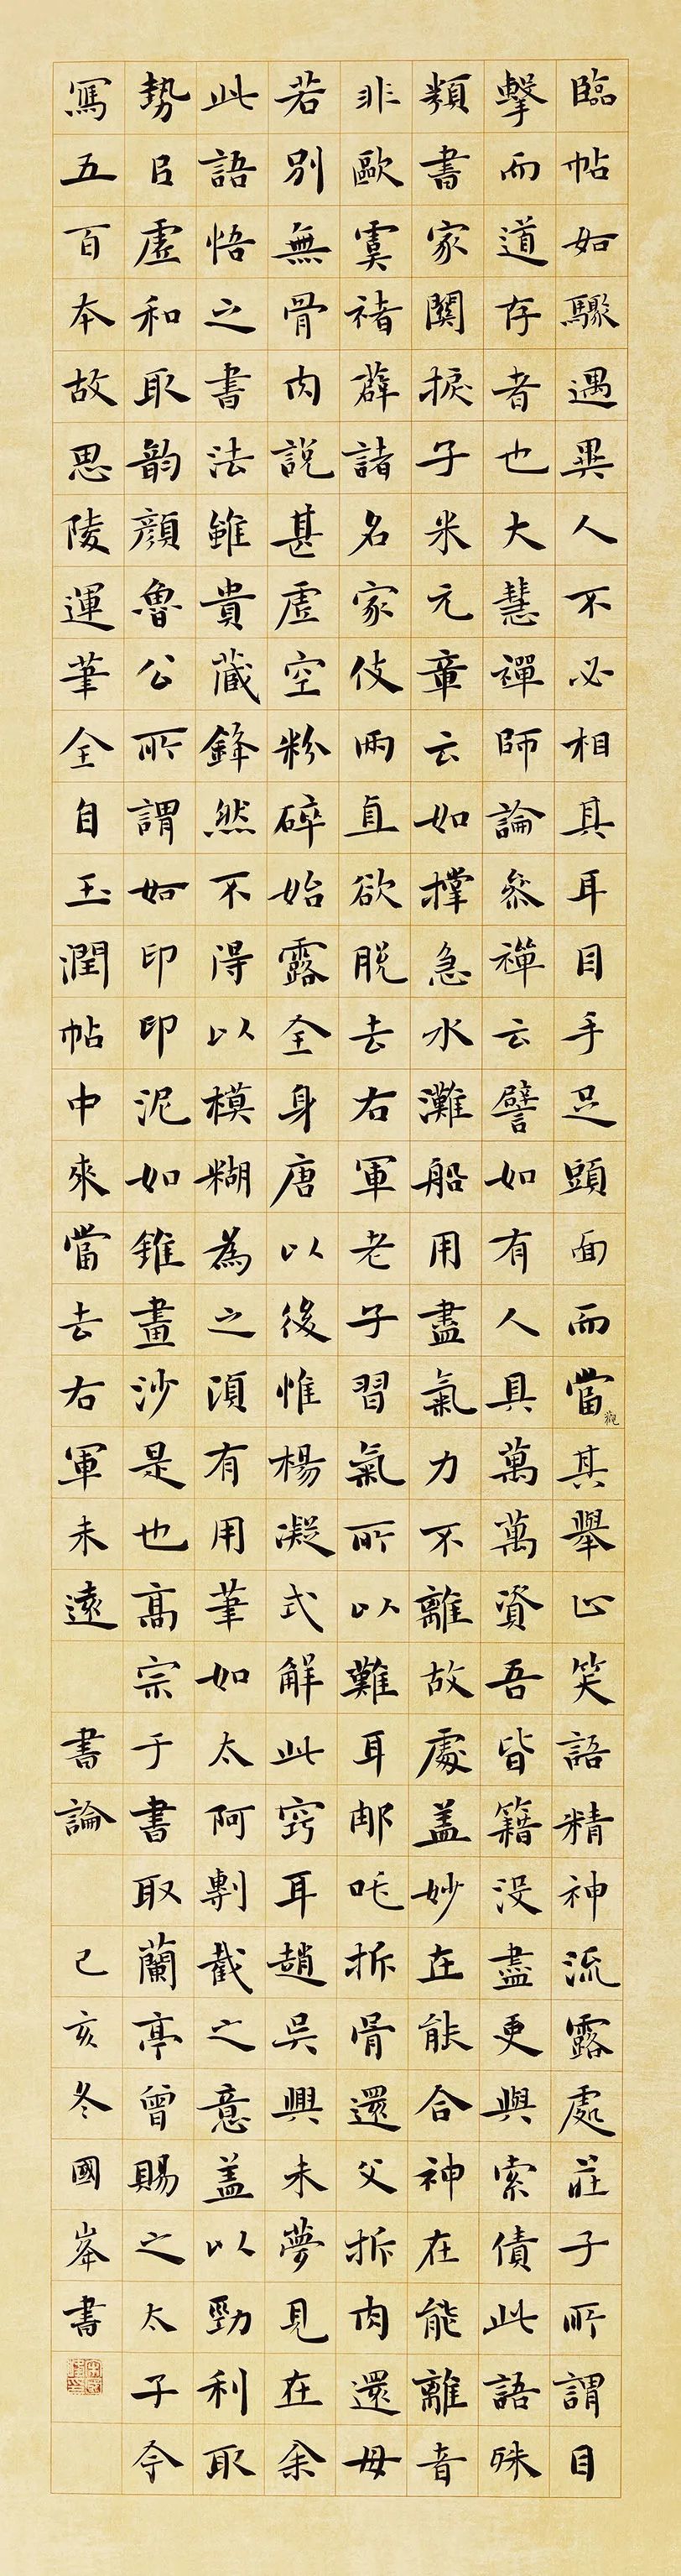 臨帖如驟遇異人不必相其耳目手足頭面而當觀其舉止笑語精神流露處莊子所謂目
擊而道存者也大慧禪師論參禪云譬如有人具萬萬資吾皆籍没盡更與索債此語殊
類書家關捩子米元章云如撑急水灘船用盡氣力不離故處盖妙在能合神在能離音
非歐虞褚薜諸名家伎兩直欲脱去右軍老子習氣所以難耳那吒拆骨還父拆肉還母
若別無骨肉説甚虛空粉碎始露全身唐以後惟楊凝式解此窍耳趙吳興未夢見在余
此語悟之書法雖貴藏鋒然不得以模糊為之須有用筆如太阿剸截之意盖以勁利取
勢㠯虛和取韵顏魯公所謂如印印泥如錐畫沙是也髙宗于書取蘭亭曾賜之太子令
寫五百本故思陵運筆全自玉潤帖中來當去右軍未遠 書論 己亥冬國峯書